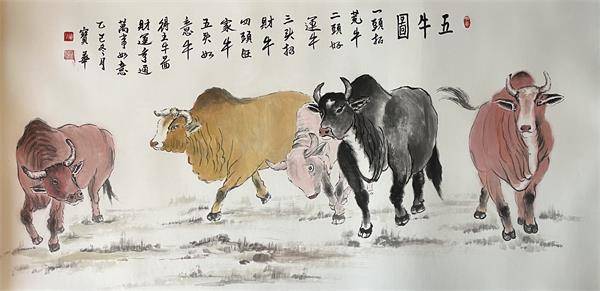 五牛圖
一頭拓
荒牛
二頭好
運牛
三頭招
財牛
四頭旺
家牛
五頭如
意牛
得五牛圖
財運亨通
萬事如意
乙巳冬月
寶華